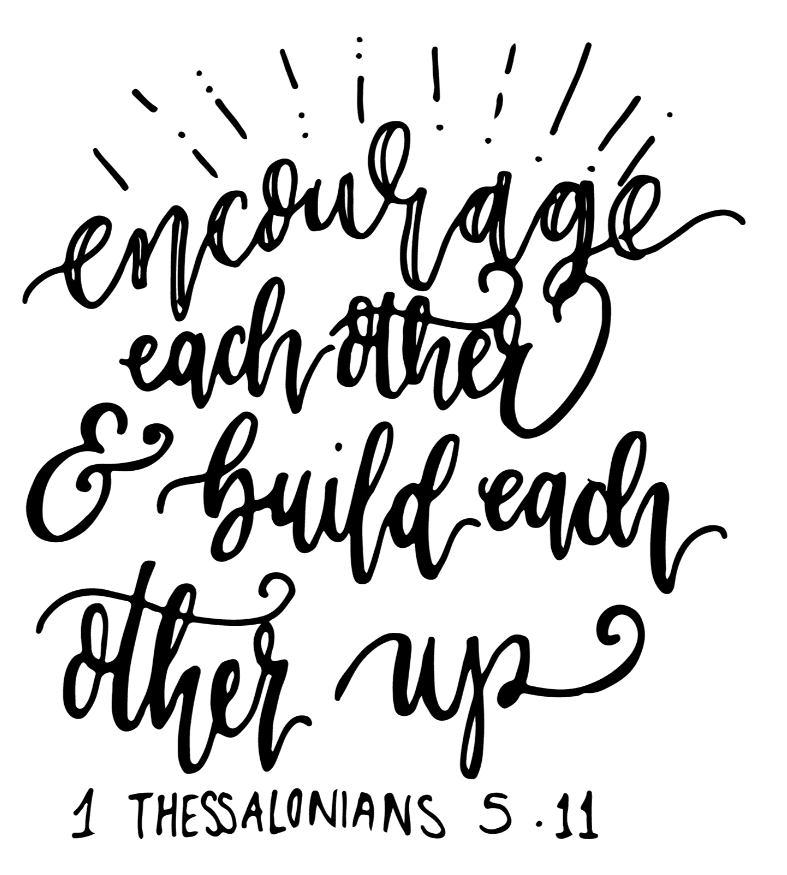 encourage
each other
& build each
other up
1 THESSALONIANS 5.11